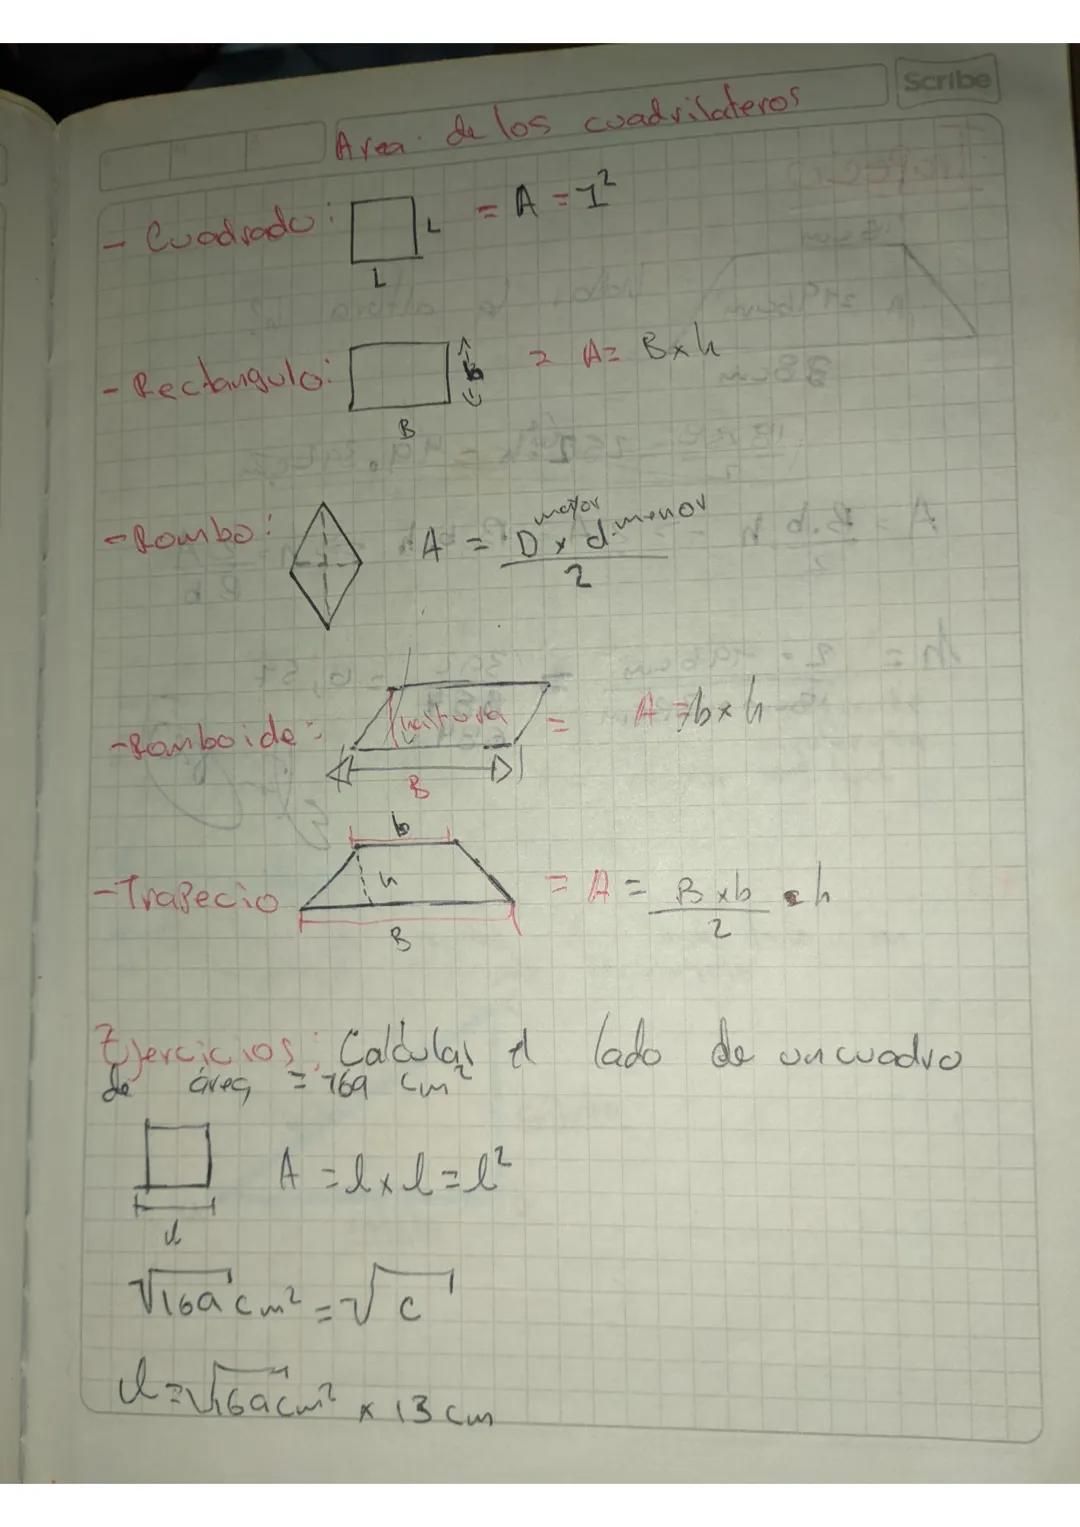 Scribe
Area de los cuadrilateros
- Cuadrado: L = A = l²
L
- Rectangulo: b = A = B x h
B
- Rombo: A = D mayor x d menor
2
- Romboide: altura = A = b x h
B
b
- Trapecio h = A = B x b · h
2
B
Ejercicios; Calcular el lado de un cuadro
de área = 169 cm²
A = l x l = l²
l
√169 cm² = √c
l = √169 cm² x 13 cm